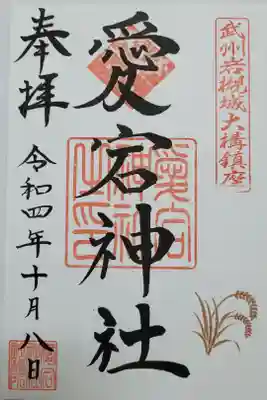 武州岩槻城大構鎮座
愛宕神社
愛宕
神社
之印
奉拝
令和四年十月八日